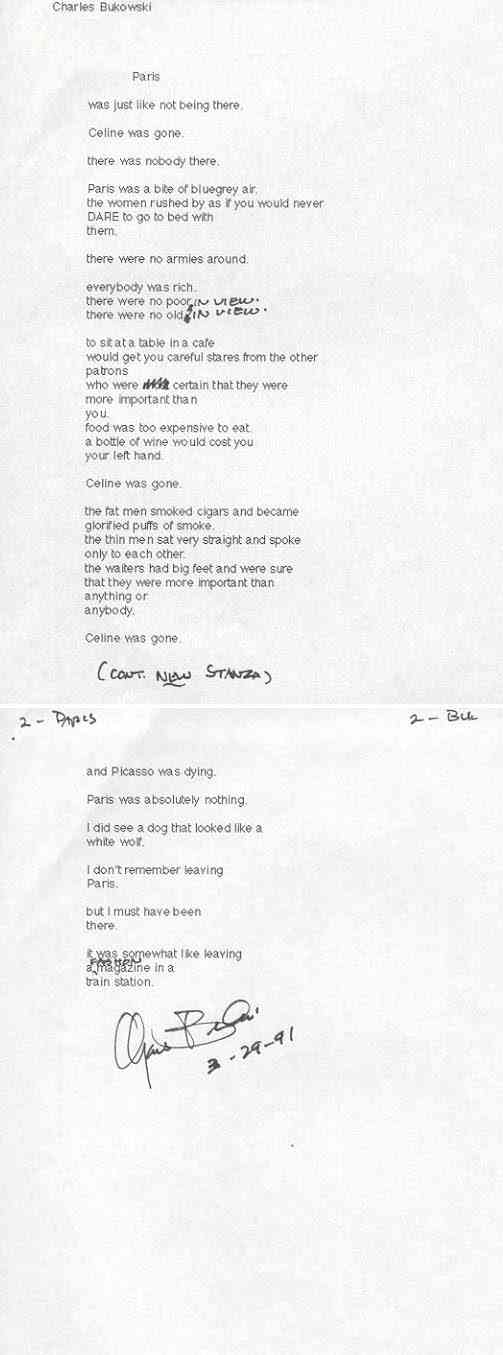 Charles Bukowski
Paris
was just like not being there.
Celine was gone.
there was nobody there.
Paris was a bite of bluegrey air.
the women rushed by as if you would never
DARE to go to bed with
them.
there were no armies around.
everybody was rich.
there were no poor IN VIEW.
there were no old IN VIEW.
to sit at a table in a cafe
would get you careful stares from the other
patrons
who were certain that they were
more important than
you.
food was too expensive to eat.
a bottle of wine would cost you
your left hand.
Celine was gone.
the fat men smoked cigars and became
glorified puffs of smoke.
the thin men sat very straight and spoke
only to each other.
the waiters had big feet and were sure
that they were more important than
anything or
anybody.
Celine was gone.
(CONT. NEW STANZA)
2 - PARIS
2 - BUK
and Picasso was dying.
Paris was absolutely nothing.
I did see a dog that looked like a
white wolf.
I don't remember leaving
Paris.
but I must have been
there.
it was somewhat like leaving
a FASHION magazine in a
train station.
Charles Bukowski
3-29-91